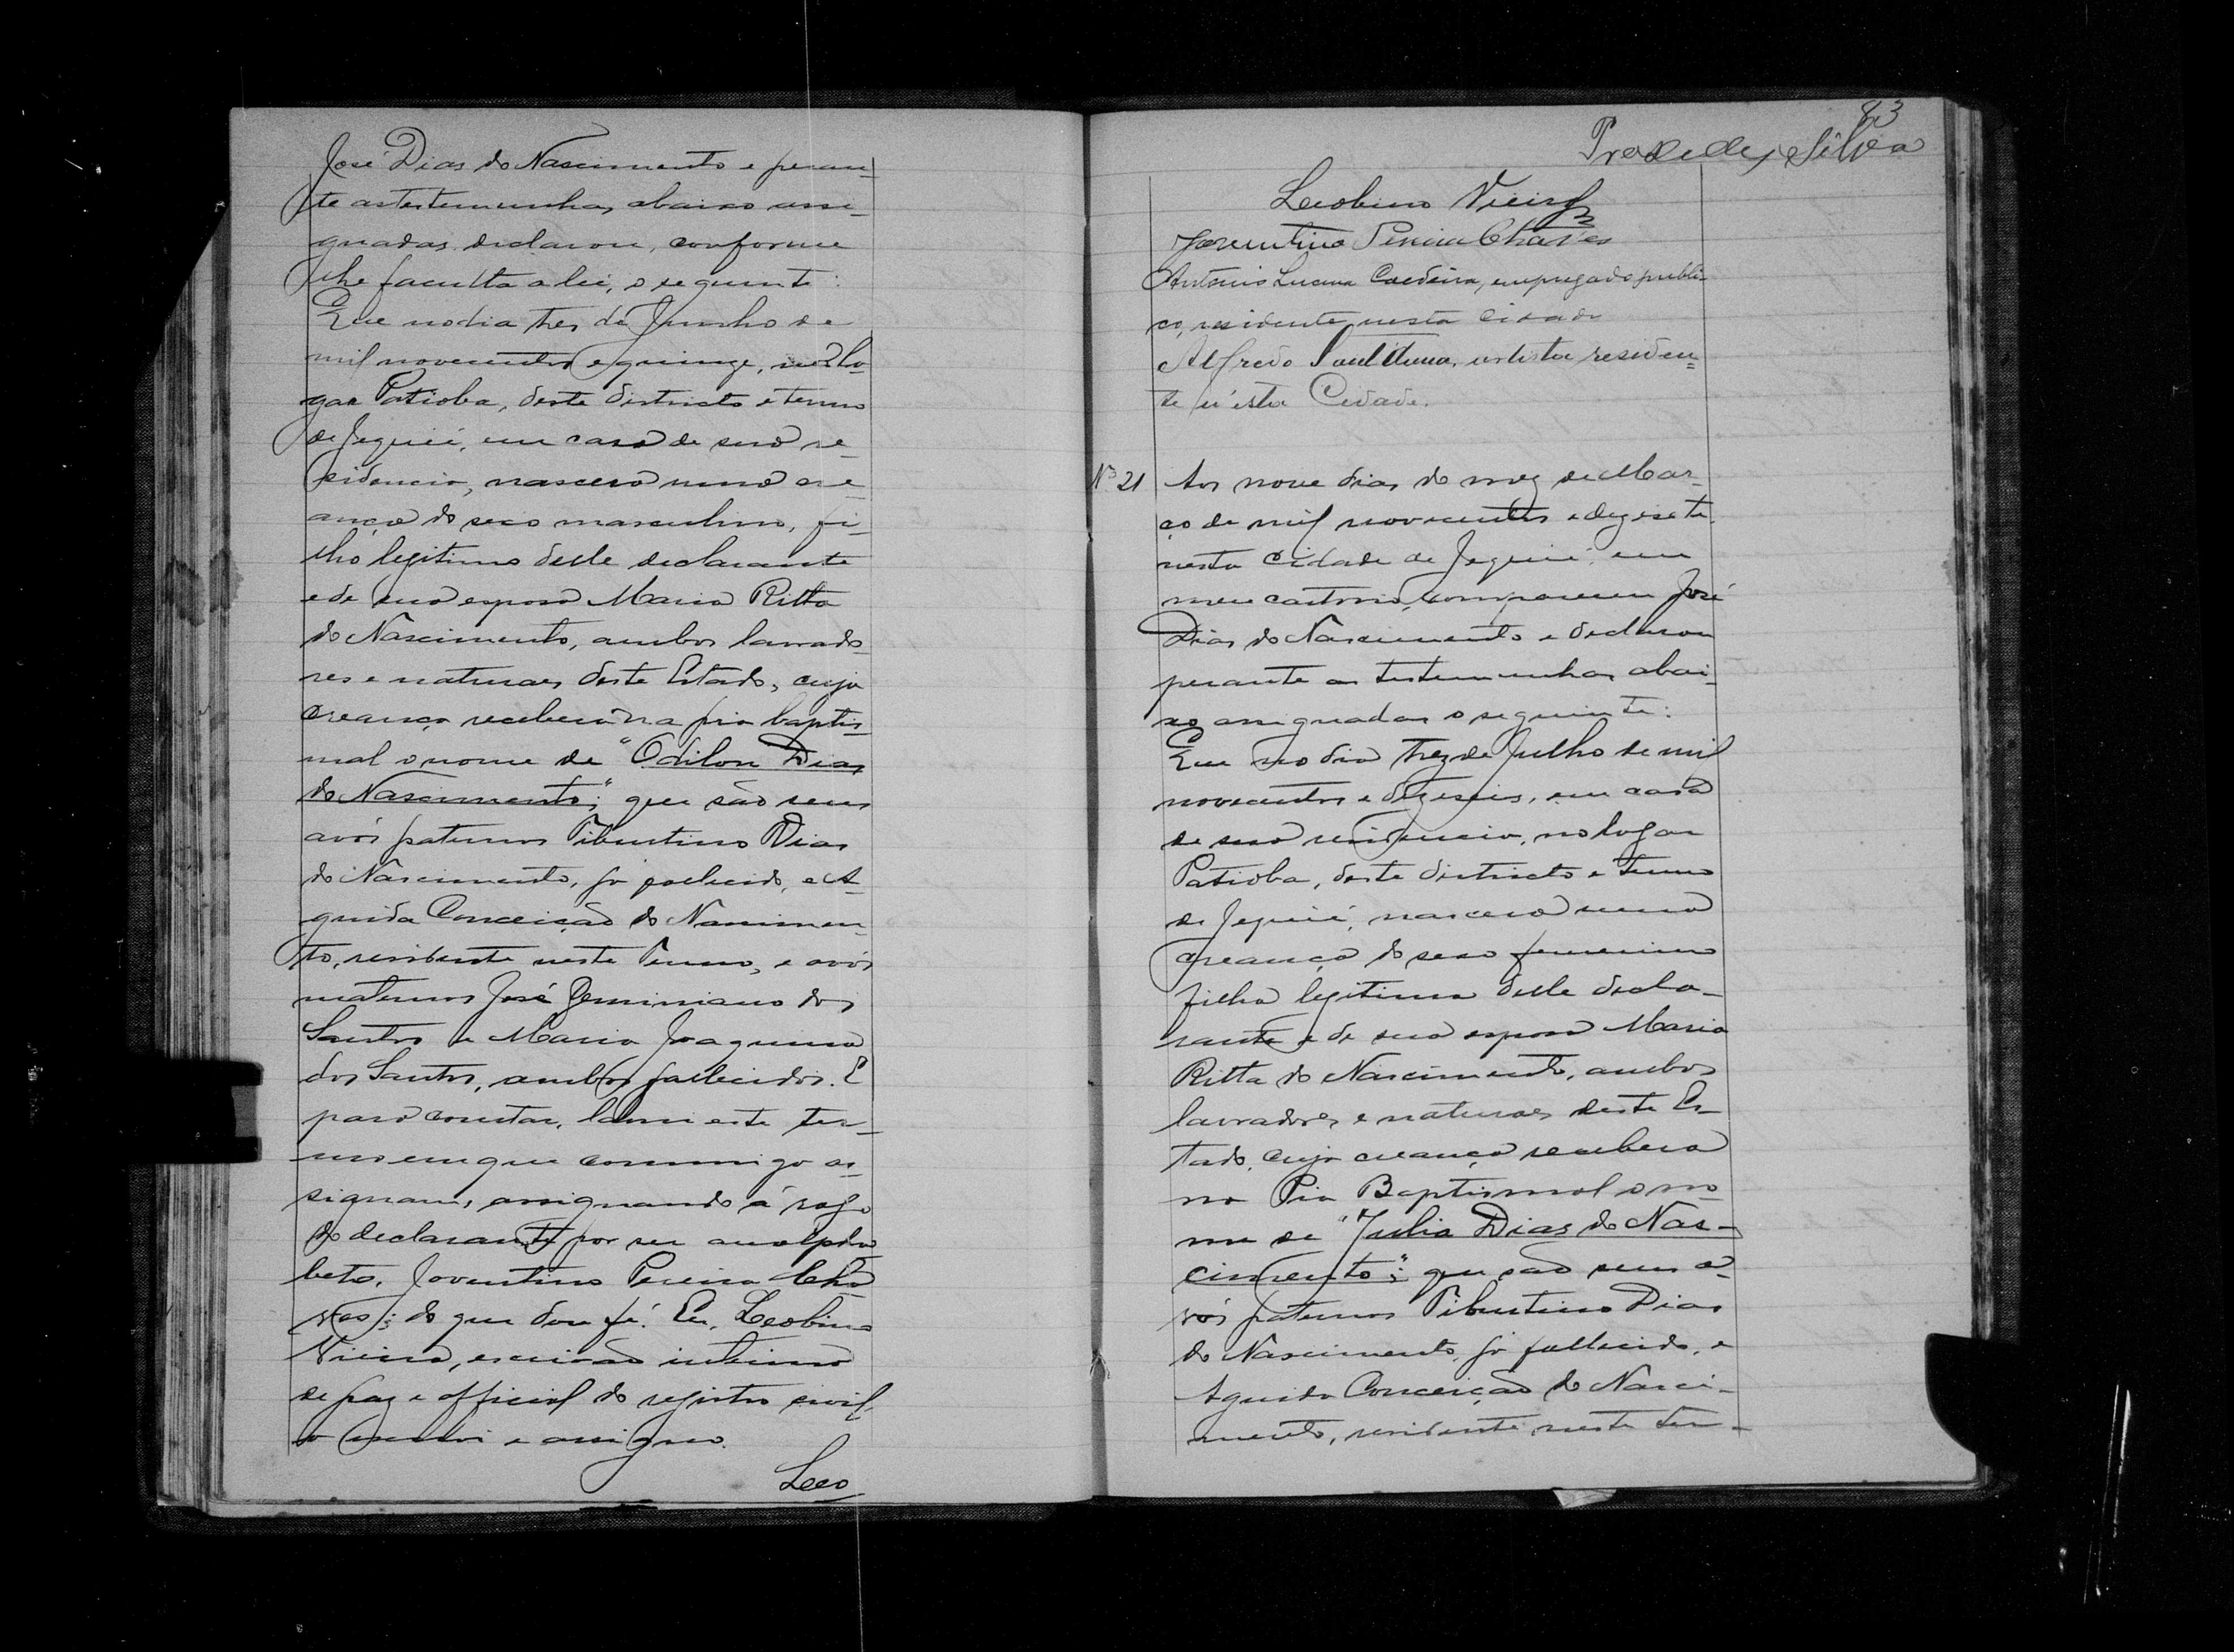 José Dias do Nascimento e peran-
te as testemunhas abaixo assi-
gnadas declarou, conforme
lhe faculta a lei, o seguinte:
Que no dia tres de Junho de
mil novecentos e quinze, no lo-
gar Patioba, deste districto e termo
de Jequié, em casa de sua re-
sidencia, nascera uma cre-
ança do sexo masculino, fi-
lho legitimo delle declarante
e de sua esposa Maria Ritta
do Nascimento, ambos lavrado-
res e naturaes deste Estado, cuja
creança recebera na pia baptis-
mal o nome de "Odilon Dias
do Nascimento"; que são seus
avós paternos Tiburtino Dias
do Nascimento, já fallecido, e A-
guida Conceição do Nascimen-
to, residente neste Termo, e avós
maternos José Geminiano dos
Santos e Maria Joaquina
dos Santos, ambos fallecidos. E
para constar, lavrei este ter-
mo em que commigo as-
signam, assignando á rogo
do declarante por ser analpha
beto, Joventino Pereira Cha-
ves; do que dou fé. Eu, Leobino
Vieira, escrivão interino
de paz e official do registro civil,
o escrevi e assigno.
Leo
83
Prazedes Silva
Leobino Vieira
Joventino Pereira Chaves
Antonio Lucena Caldeira, empregado publi-
co, residente nesta cidade
Alfredo Sant'Anna, artista residen-
te n'esta Cidade.
Nº 21
Aos nove dias do mez de Mar-
ço de mil novecentos e dezesete,
nesta cidade de Jequié, em
meu cartorio, compareceu José
Dias do Nascimento e declarou
perante as testemunhas abai-
xo assignadas o seguinte:
Que no dia trez de Julho de mil
novecentos e dezeseis, em casa
de sua residencia, no logar
Patioba, deste districto e termo
de Jequié, nascera uma
creança do sexo femenino
filha legitima delle decla-
rante e de sua esposa Maria
Ritta do Nascimento, ambos
lavradores e naturaes deste Es-
tado, cuja creança recebera
na Pia Baptismal o no-
me de "Julia Dias do Nas-
cimento"; que são seus a-
vós paternos Tiburtino Dias
do Nascimento, já fallecido, e
Aguida Conceição do Nasci-
mento, residente neste ter-